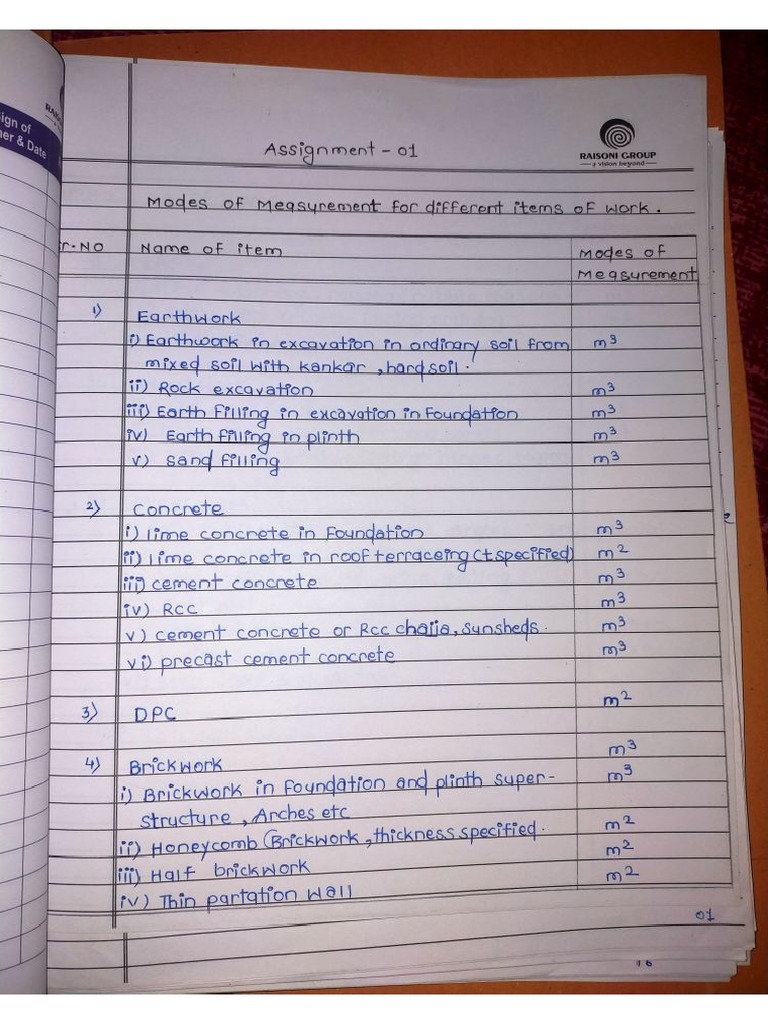 ign of
er & Date
RAIS
Assignment - 01
RAISONI GROUP
a vision beyond
Modes of Measurement for different items of work.
Sr.NO Name of item Modes of
Measurement
1) Earthwork
i) Earthwork in excavation in ordinary soil from m3
mixed soil with kankar, hard soil.
ii) Rock excavation m3
iii) Earth filling in excavation in foundation m3
iv) Earth filling in plinth m3
v) sand filling m3
2) Concrete
i) lime concrete in foundation m3
ii) lime concrete in roof terraceing (t specified) m2
iii) cement concrete m3
iv) RCC m3
v) cement concrete or Rcc chajja, sunsheds. m3
vi) precast cement concrete m3
3) DPC m2
4) Brickwork m3
i) Brickwork in foundation and plinth super- m3
structure, Arches etc
ii) Honeycomb Brickwork, thickness specified. m2
iii) Half brickwork m2
iv) Thin partation wall m2
01
16